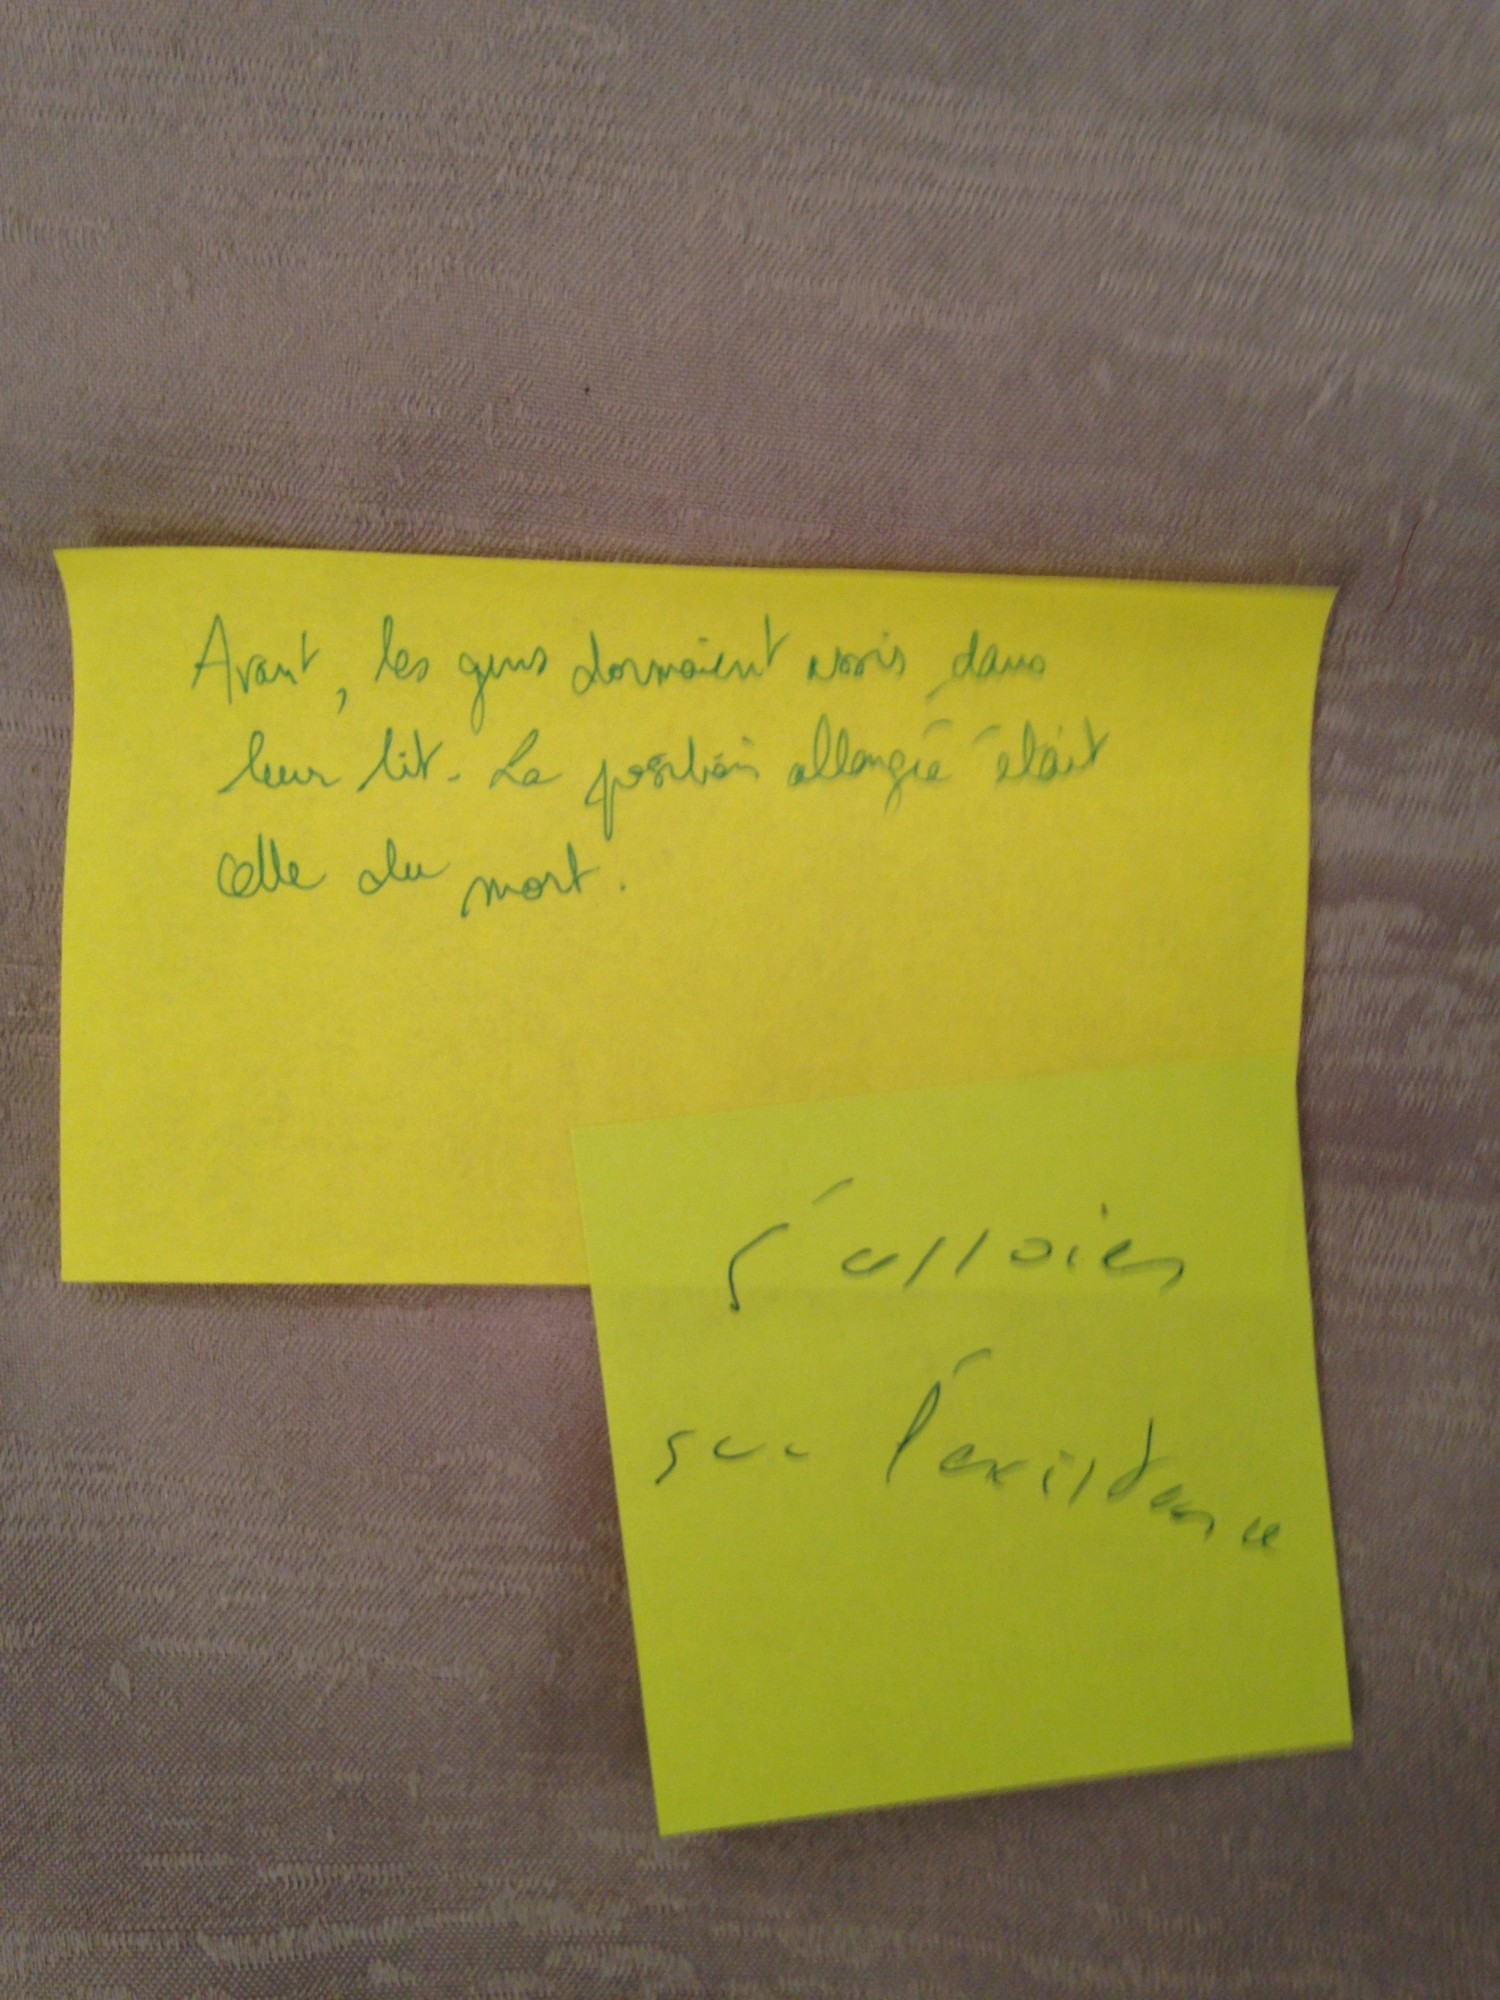 Avant, les gens dormaient assis dans
leur lit. La position allongée était
celle du mort.
S'assoir
sur l'existence